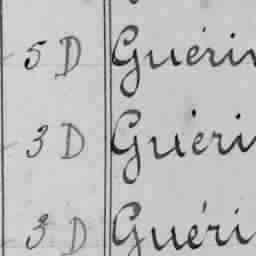 5 D Guérin
3 D Guéri
3 D Guéri